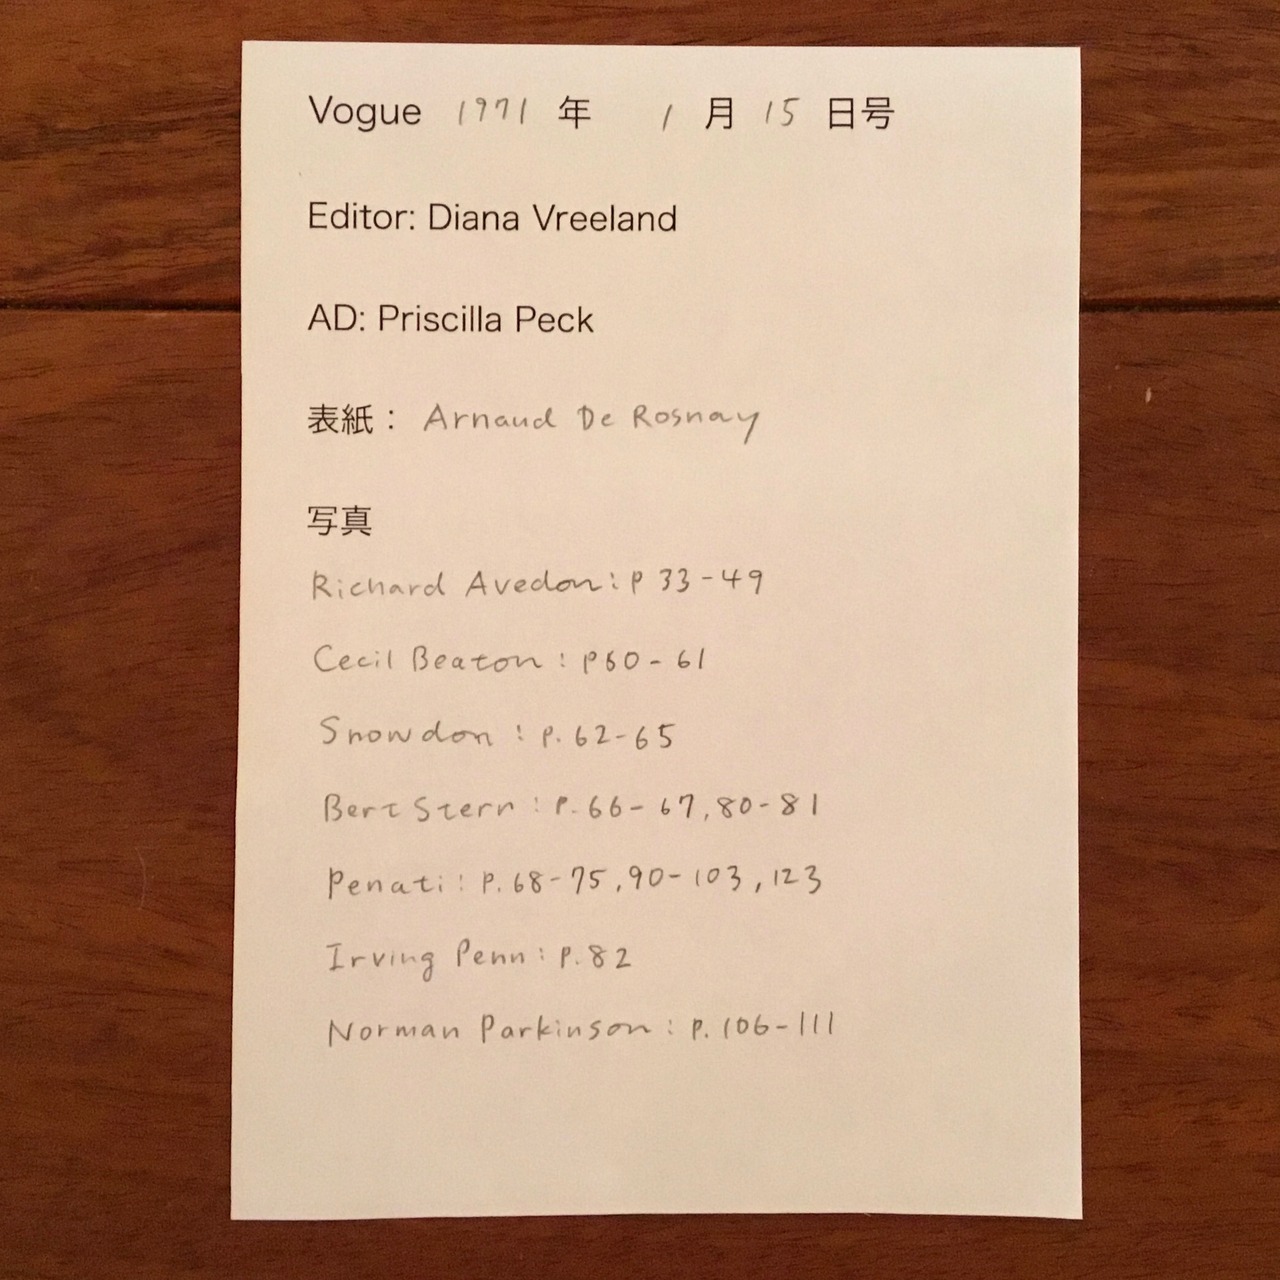 Vogue 1971 年 1 月 15 日号
Editor: Diana Vreeland
AD: Priscilla Peck
表紙： Arnaud De Rosnay
写真
Richard Avedon: p 33-49
Cecil Beaton : p60-61
Snowdon : p.62-65
Bert Stern : p.66-67,80-81
Penati : p.68-75,90-103,123
Irving Penn : p.82
Norman Parkinson : p.106-111